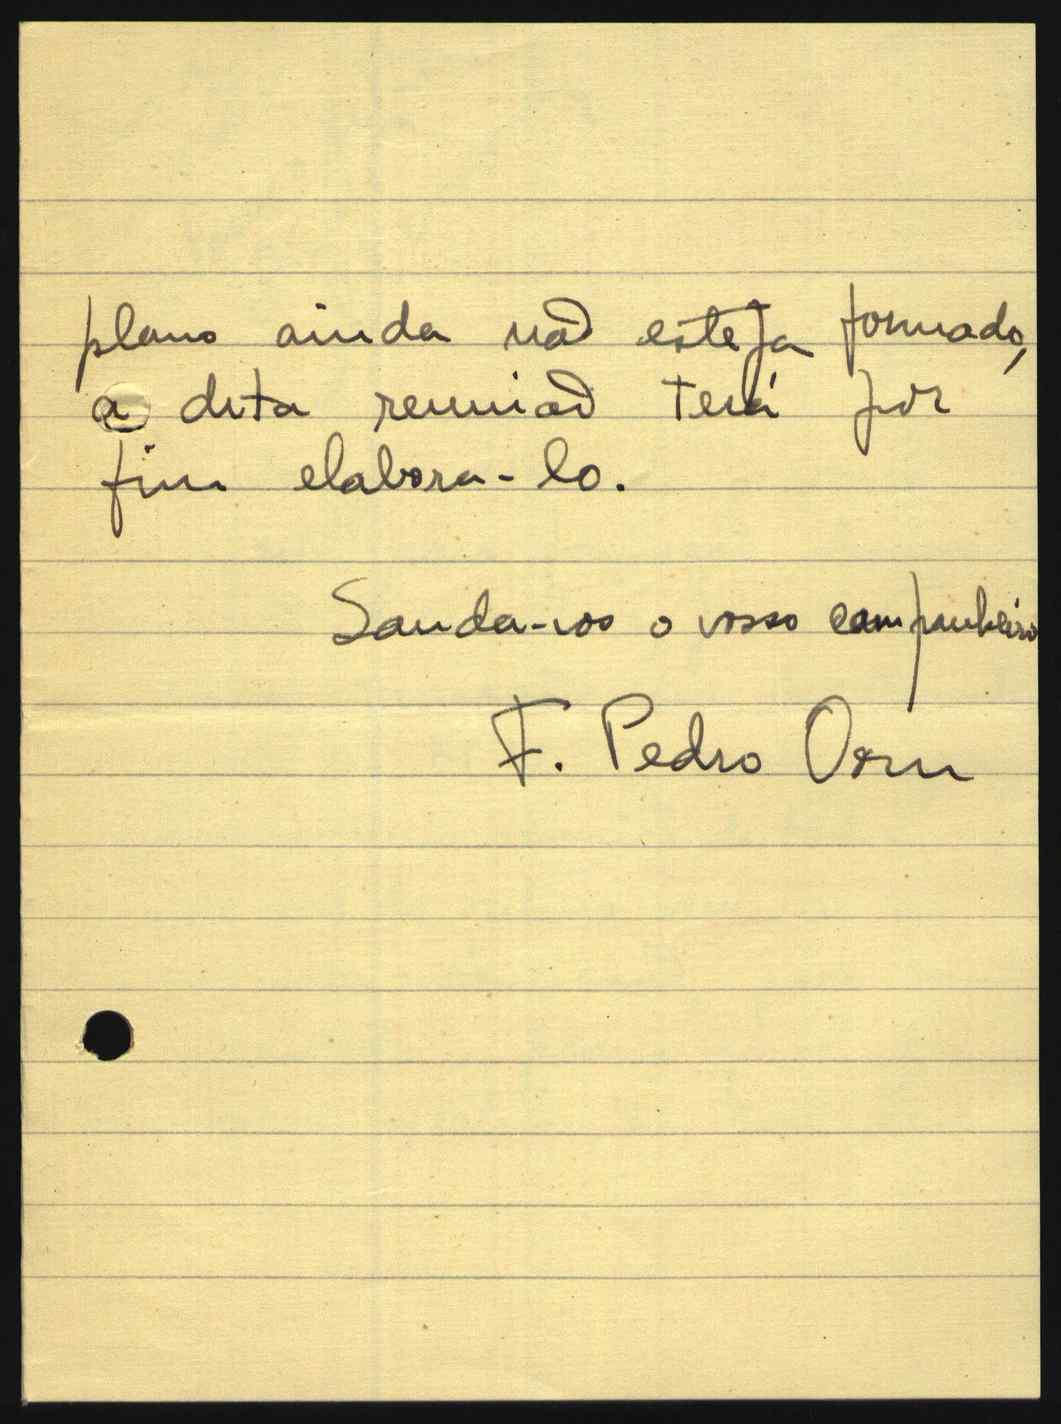 plano ainda não esteja formado,
a dita reunião terá por
fim elabora-lo.
Sauda-vos o vosso companheiro
F. Pedro